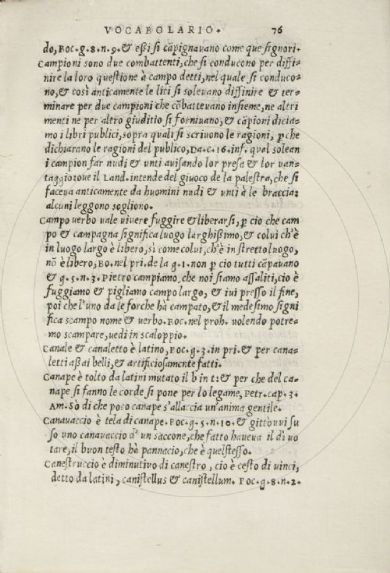 VOCABOLARIO. 76
do, Boc. g. 8. n. 9. & eßi si cāpignauano come que signori.
Campioni sono due combattenti, che si conducono per diffi-
nire la loro questione è campo detti, nel quale si conduco-
no, & così anticamente le liti si soleuano diffinire & ter-
minare per due campioni che cōbatteuano insieme, ne altri
menti ne per altro giuditio si forniuano, & cāpioni dicia-
mo i libri publici, sopra quali si scriuono le ragioni, ꝑ che
dichiarano le ragioni del publico, Da. c. 16. inf. qual solean
i campion far nudi & unti auisando lor presa & lor uan-
taggio: oue il Land. intende del giuoco de la palestra, che si
faceua anticamente da huomini nudi & unti è le braccia:
alcuni leggono sogliono.
Campo uerbo uale uiuere fuggire & liberarsi, ꝑ cio che cam
po & campagna significa luogo larghißimo, & colui ch'è
in luogo largo è libero, si come colui, ch'è in stretto luogo,
nō è libero, Bo. nel pri. de la g. 1. non ꝑ cio tutti cāpauano
& g. 5. n. 3. Pietro campiamo, che noi siamo assaliti, cio è
fuggiamo & pigliamo campo largo, & iui presso il fine,
poi che l'uno da le forche hà campato, & il medesimo signi
fica scampo nome & uerbo. Boc. nel proh. uolendo potre-
mo scampare, uedi in scaloppio.
Canale & canaletto è latino, Boc. g. 3. in pri. & per cana-
letti assai belli, & artificiosamente fatti.
Canape è tolto da latini mutato il b in t: & per che del ca-
nape si fanno le corde si pone per lo legame, Petr. cap. 3.
Am. Sò di che poco canape s'allaccia un'anima gentile.
Canauaccio è tela di canape. Boc. g. 5. n. 10. & gittouui su
so uno canauaccio d'un saccone, che fatto haueua il dì uo
tare, il buon testo hà pannacio, che è quelstesso.
Canestruccio è diminutiuo di canestro, cio è cesto di uinci,
detto da latini, canistellus & canistellum. Boc. g. 8. n. 2.